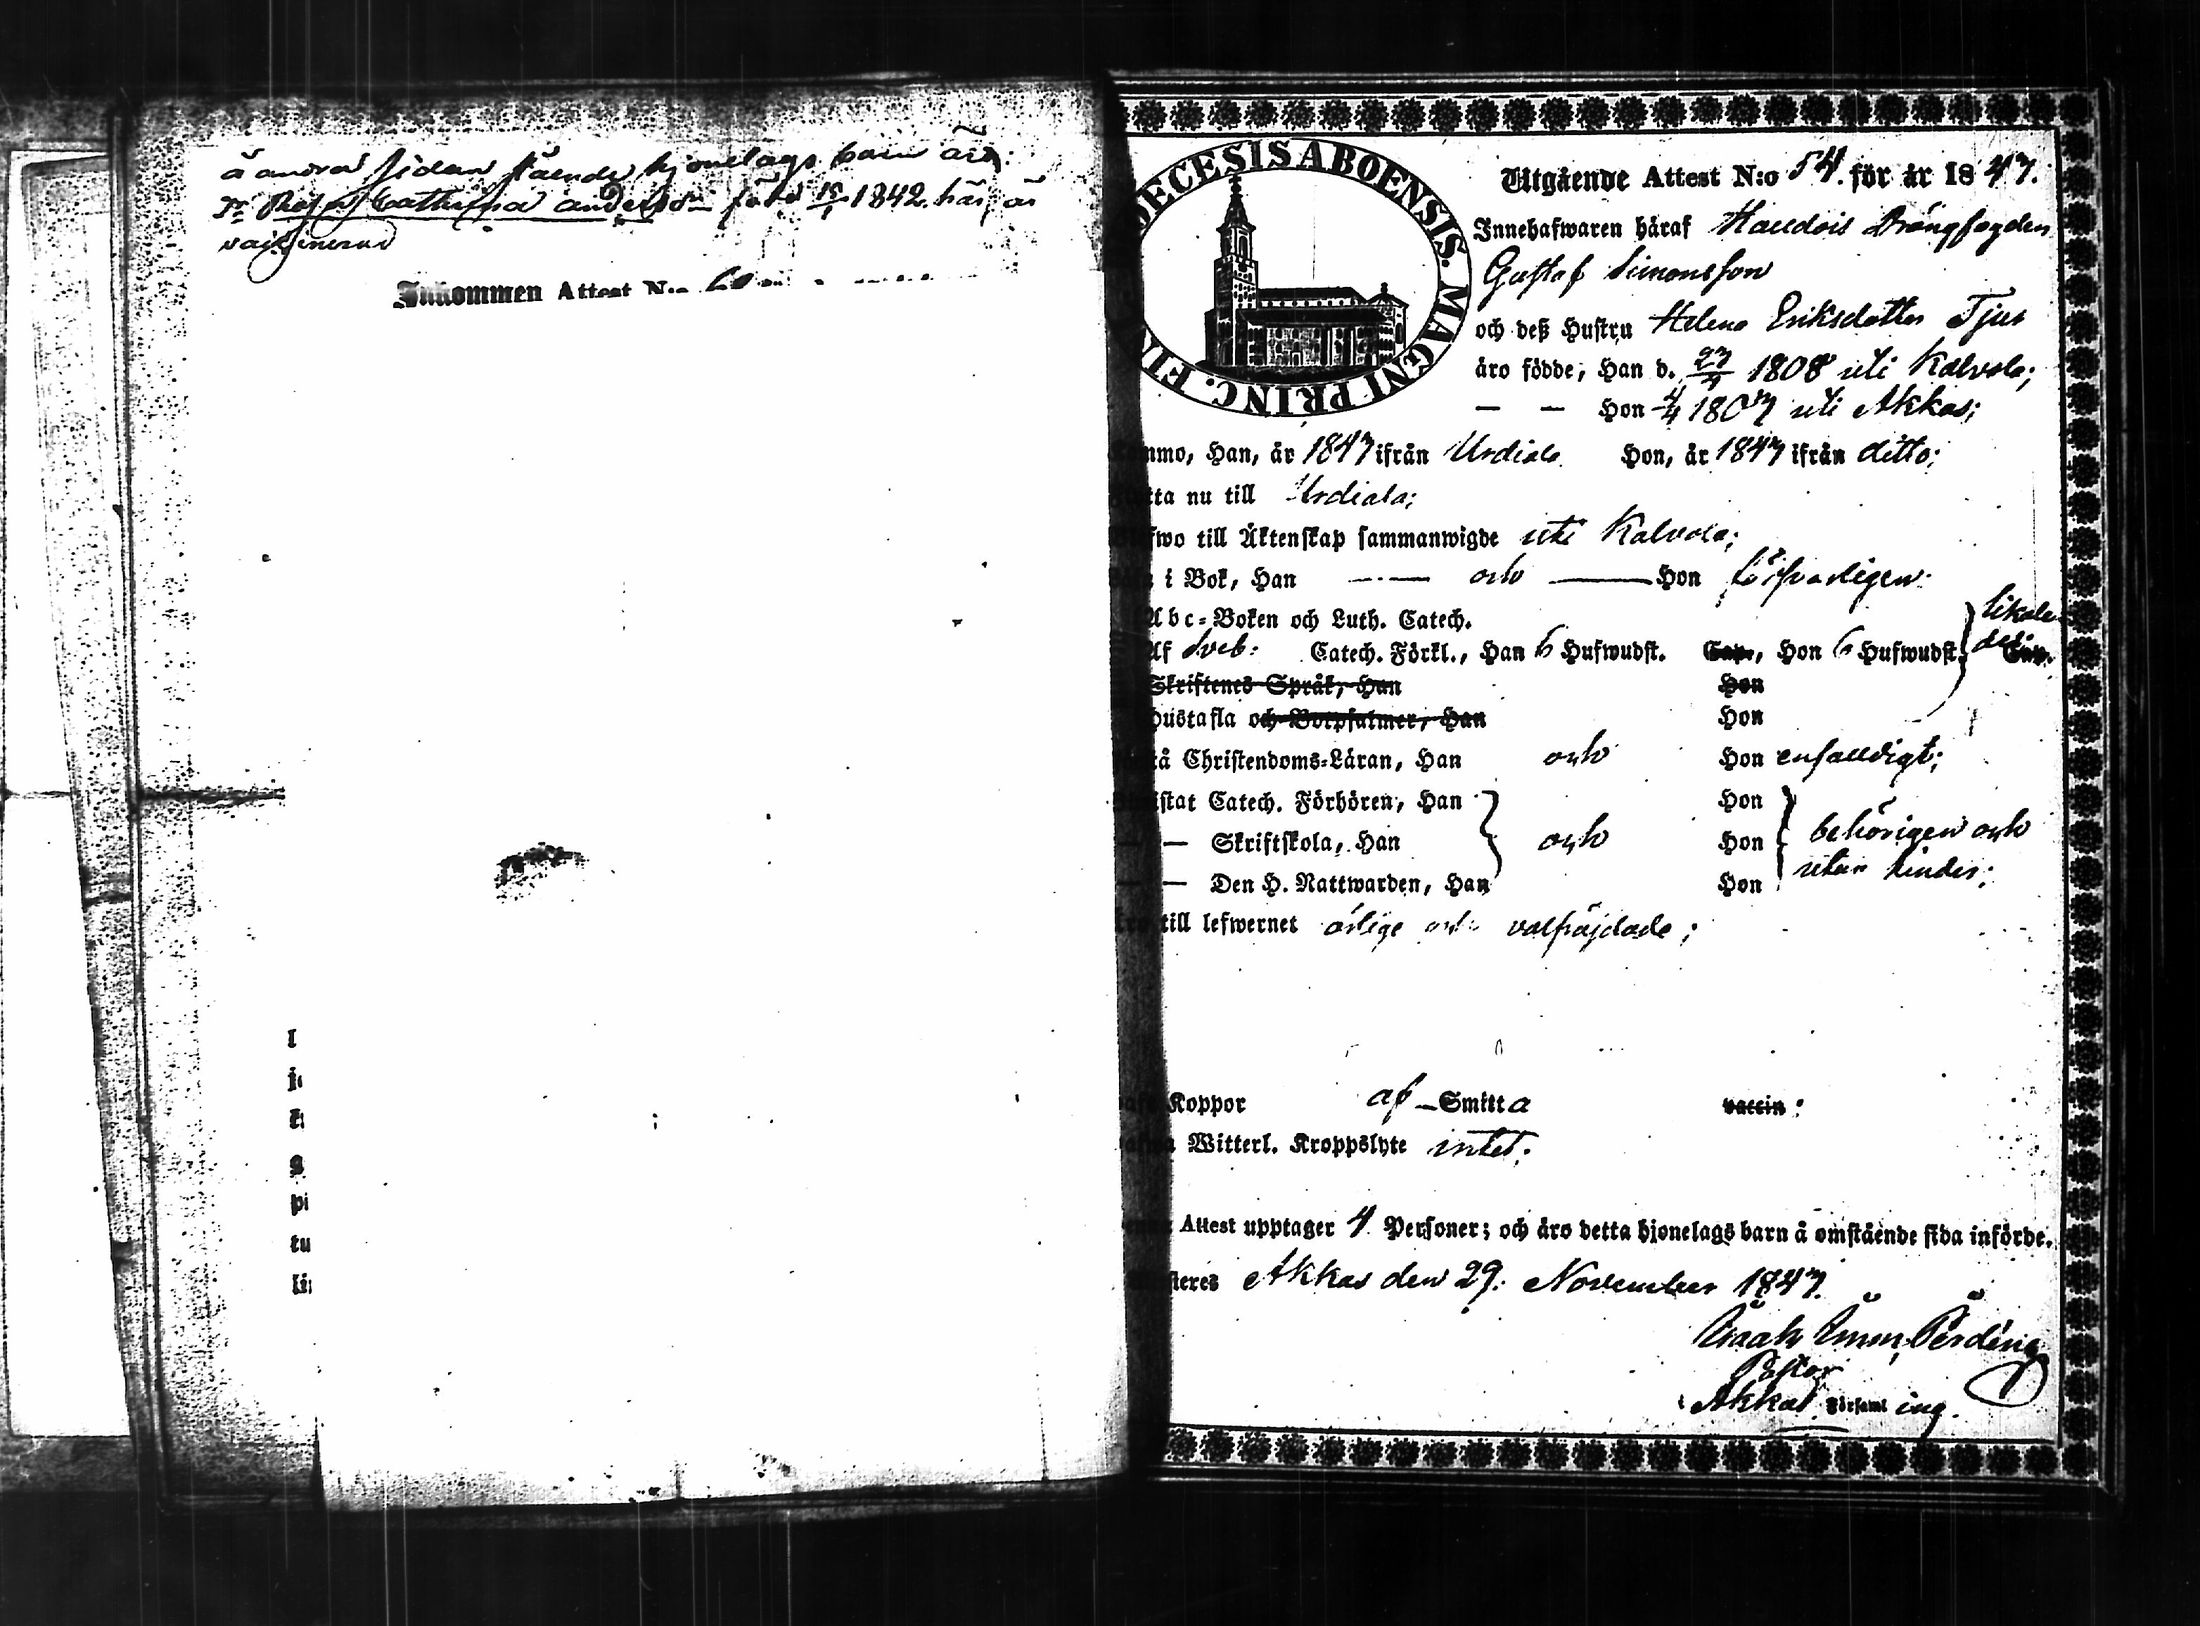 å andra sidan stående hjonelags barn är:
Cathrina andersson född 1842. har, är
vaccinerad
Inkommen Attest N:o 60
DECESIS ABOENSIS. MAGNI PRINC. FI
Utgående Attest N:o 54. för år 1847.
Innehafwaren häraf Drängfogden
Gustaf Simonsson
och deß Hustru Helena Eriksdotter Tjur
äro födde, Han d. 27 1808 uti Kalvola;
— — Hon 4/4 1807 uti Akkas;
mmo, Han, år 1847 ifrån Urdiala Hon, år 1847 ifrån ditto;
tta nu till Urdiala;
fwo till Äktenskap sammanwigde uti Kalvola;
i Bok, Han —·— och —— Hon försvarligen.
Abc-Boken och Luth. Catech.
Af Sveb: Catech. Förkl., Han 6 Hufwudst. Cap., Hon 6 Hufwudst. Cap. likaledes
Skriftenes Språk, Han Hon
Hustafla och Botpsalmer, Han Hon
tå Christendoms-Läran, Han och Hon enfaldigt;
istat Catech. Förhören, Han Hon
— — Skriftskola, Han och Hon behörigen och
— — Den H. Nattwarden, Han Hon utan hinder;
till lefwernet ärlige och välfräjdade;
Koppor af Smitta vaccin:
Witterl. Kroppslyte intet;
Attest upptager 4 Personer; och äro detta hjonelags barn å omstående sida införde.
steres Akkas den 29. November 1847.
Pastor
i Akkas Församling.